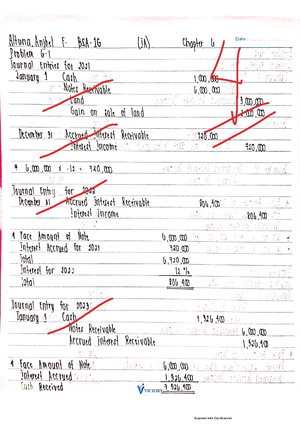 Altuna, Anjhel F. BSA-1G (IA) Chapter 6 Date
Problem 6-1
Journal Entries for 2021
January 1 Cash 1,000,000
Notes Receivable 6,000,000
Land 5,000,000
Gain on sale of land 2,000,000
December 31 Accrued Interest Receivable 720,000
Interest Income 720,000
* 6,000,000 x .12 = 720,000
Journal Entry for 2022
December 31 Accrued Interest Receivable 806,400
Interest income 806,400
* Face Amount of Note 6,000,000
Interest Accrued for 2021 720,000
Total 6,720,000
Interest for 2022 12%
Total 806,400
Journal Entry for 2023
January 1 Cash 7,526,400
Notes Receivable 6,000,000
Accrued Interest Receivable 1,526,400
* Face Amount of Note 6,000,000
Interest Accrued 1,526,400
Cash Received 7,526,400
VICTORY
Scanned with CamScanner